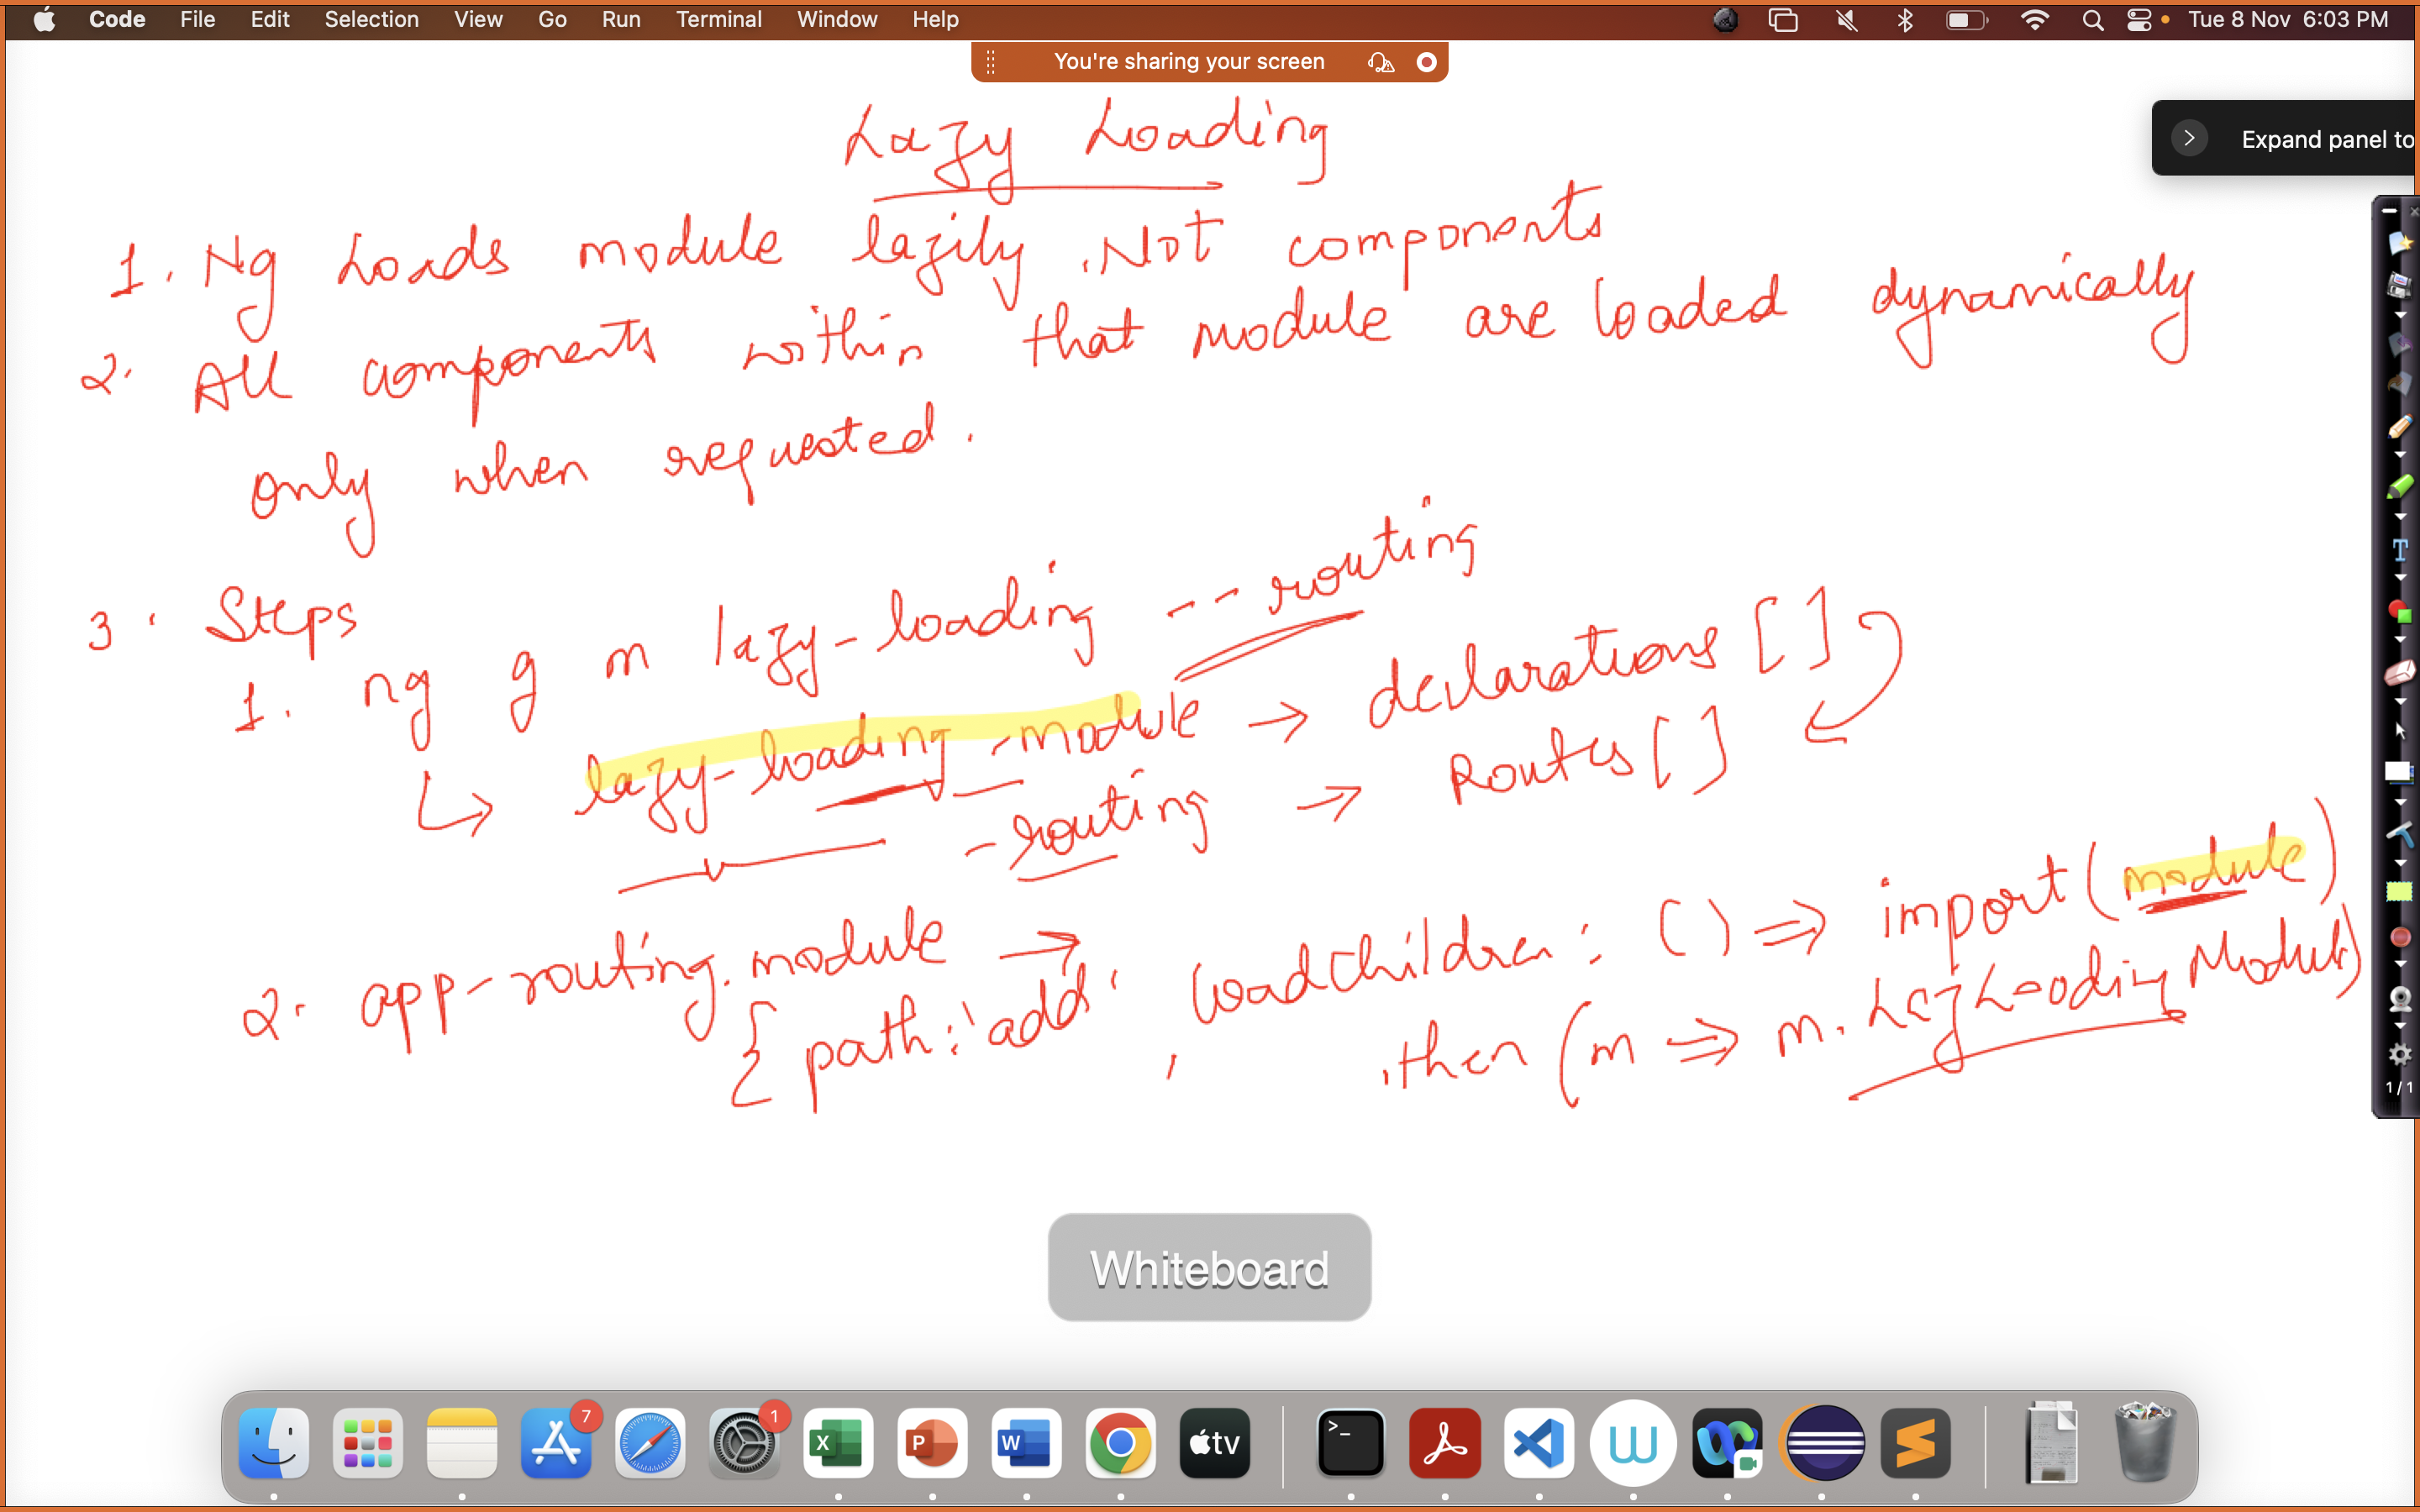 Code File Edit Selection View Go Run Terminal Window Help Tue 8 Nov 6:03 PM
You're sharing your screen
Expand panel to
Lazy Loading
1. Ng Loads module lazily. Not components
2. All components within that module are loaded dynamically
only when requested.
3. Steps
1. ng g m lazy-loading --routing
↳ lazy-loading-module → declarations []
-routing → Routes []
2. app-routing.module →
{ path: 'add' , loadchildren : () => import(module)
.then (m => m. LazyLoadingModule)
T
1/1
Whiteboard
7
1
X
P
W
tv
>_